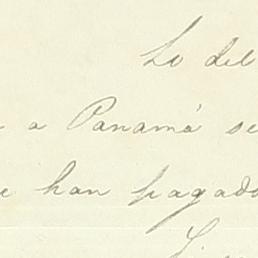 Lo del
a Panamá se
han pagado